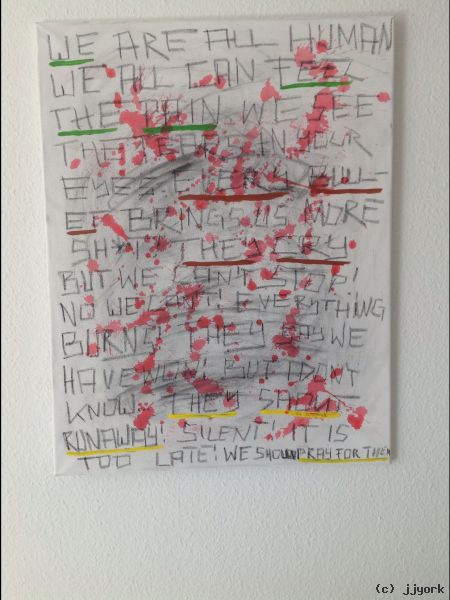 WE ARE ALL HUMAN
WE ALL CAN FEEL
THE PAIN WE SEE
THE TEARS IN YOUR
EYES EVERY BULL-
ET BRINGS US MORE
SH*T! THEY CRY
BUT WE CAN'T STOP!
NO WE CAN'T! EVERYTHING
BURNS THEY SAY WE
HAVE WON! BUT I DONT
KNOW... THEY SHOUT
RUNAWAY! SILENT! IT IS
TOO LATE! WE SHOULD PRAY FOR THEM
(c) jjyork